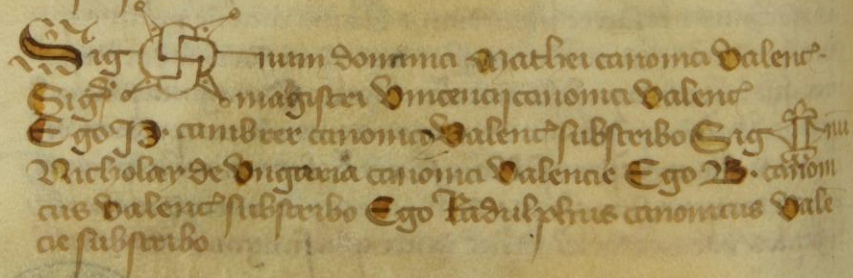 Sig num dominici Mathei canonici Valenc̃.
Sig̃ magistri Vincencii canonici Valenc̃
Ego B. canonic Valenc̃ subscribo Sig nū
Nicholay de Vngaria canonici Valencie Ego B. canoni
cus Valenc̃ subscribo Ego Radulphus canonicus Vale
cie subscribo